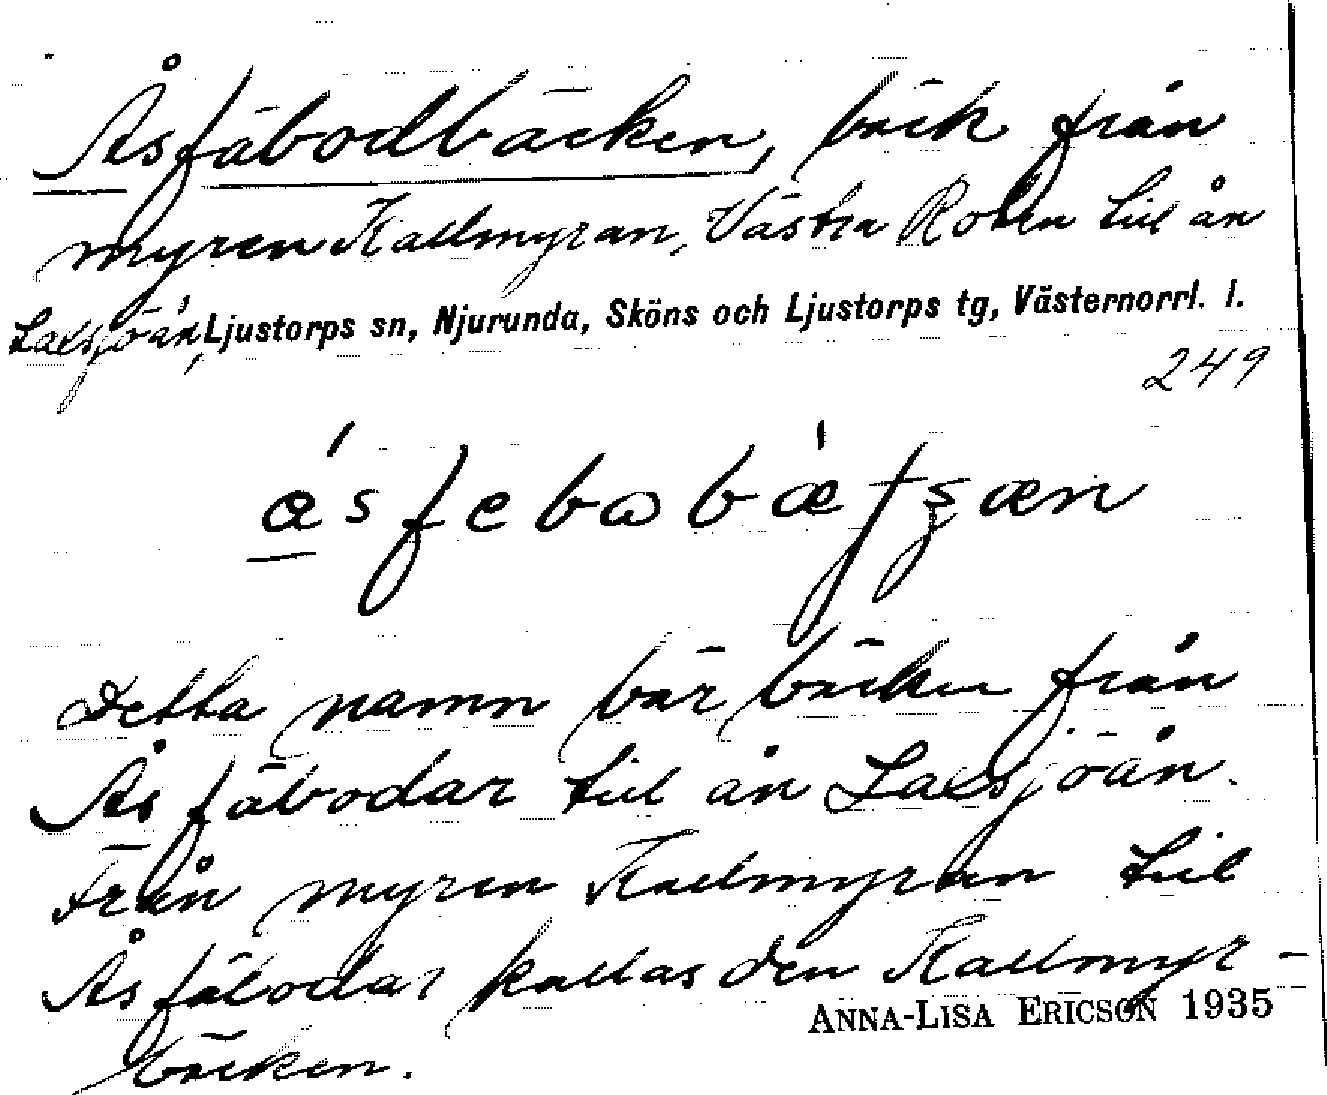 Åsfäbodbäcken, bäck från
myren Kallmyran, Västra Roten till ån
Laxsjöån, Ljustorps sn, Njurunda, Sköns och Ljustorps tg, Västernorrl. l.
249
Detta namn bär bäcken från
Ås fäbodar till ån Laxsjöån.
Från myren Kallmyran till
Ås fäbodar kallas den Kallmyr-
bäcken.
ANNA-LISA ERICSON 1935